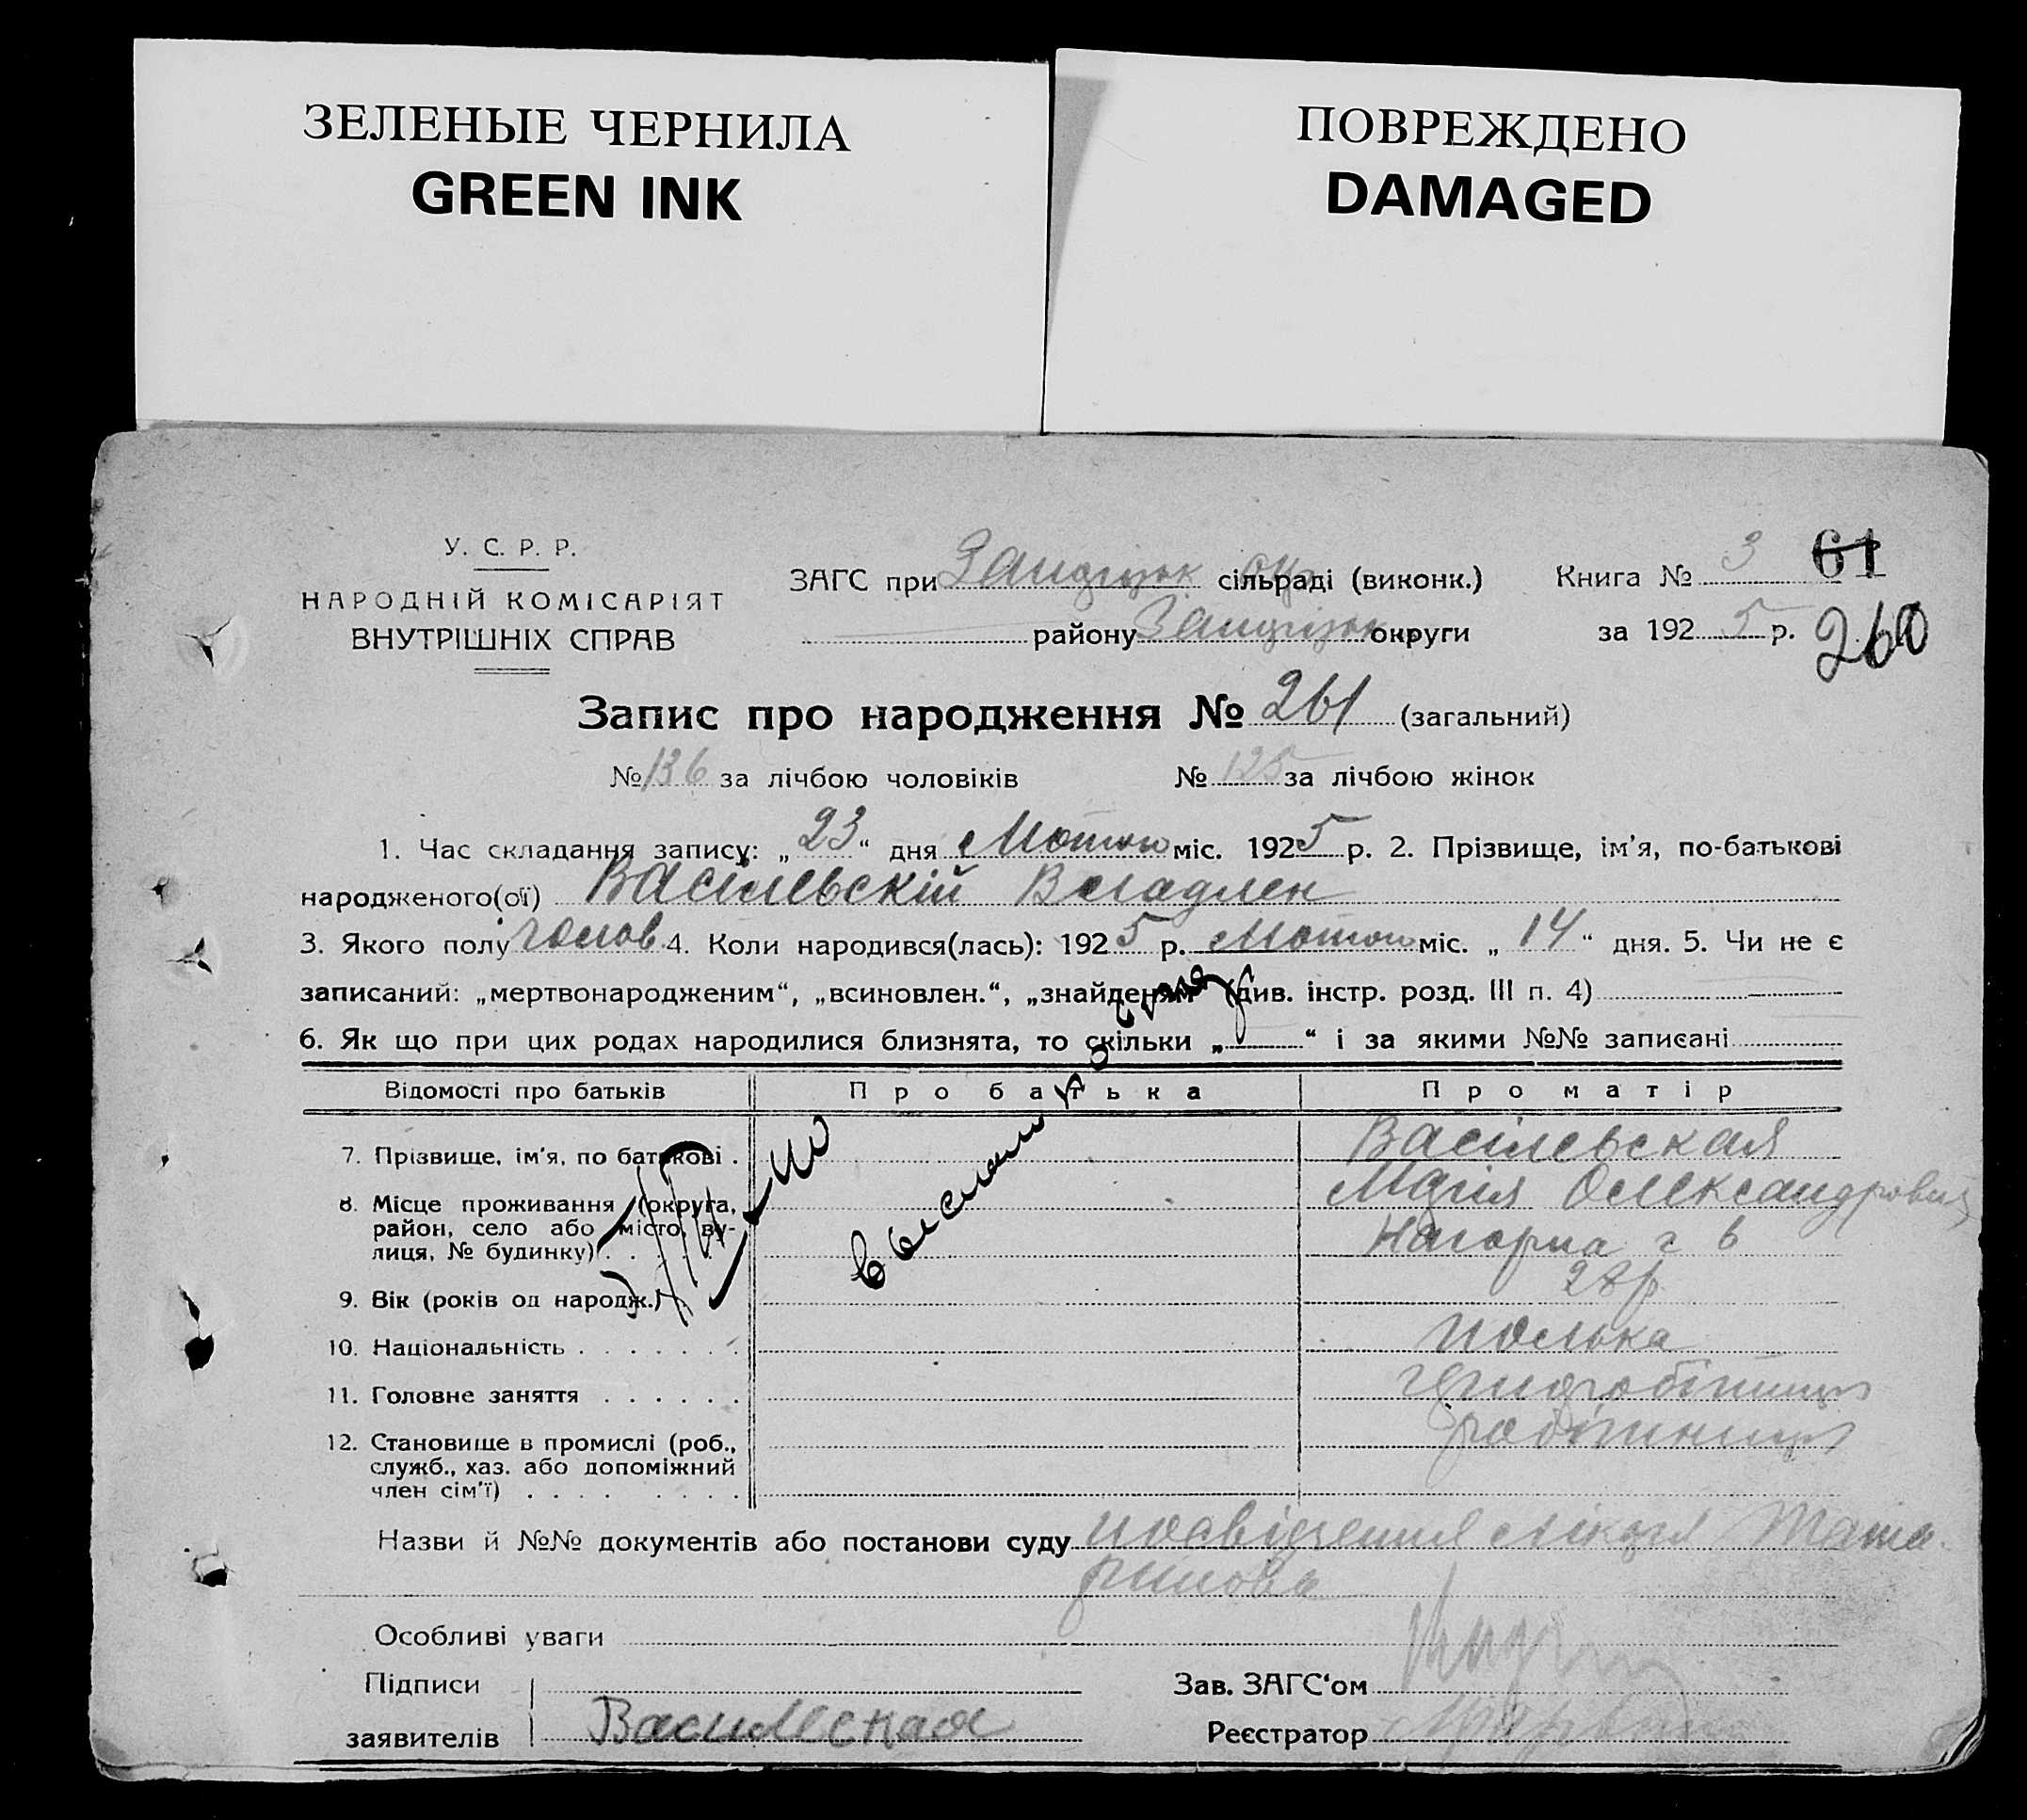 ЗЕЛЕНЫЕ ЧЕРНИЛА
GREEN INK
ПОВРЕЖДЕНО
DAMAGED
У. С. Р. Р.
НАРОДНІЙ КОМІСАРІЯТ
ВНУТРІШНІХ СПРАВ
ЗАГС при сільраді (виконк.)
району округи
Книга № 3 61
за 192 5 р. 260
Запис про народження № 261 (загальний)
№ 136 за лічбою чоловіків № 125 за лічбою жінок
1. Час складання запису: „ 23 “ дня Лютого міс. 192 5 р. 2. Прізвище, ім'я, по-батькові
народженого(ої) Васілевскій Владлен
3. Якого полу чолов 4. Коли народився(лась): 192 5 р. Лютого міс. „ 14 “ дня. 5. Чи не є
записаний: „мертвонародженим“, „всиновлен.“, „знайденям“ (див. інстр. розд. III п. 4)
6. Як що при цих родах народилися близнята, то скільки „ “ і за якими №№ записані
Відомості про батьків Про батька Про матір
7. Прізвище, ім'я, по батькові . Васілевская
8. Місце проживання (округа, Марія Олександровна
район, село або місто, ву-
лиця, № будинку) . . Нагорна 2 6
9. Вік (років од народж.) 28 р
10. Національність . . . . . . . полька
11. Головне заняття . . . . . .
12. Становище в промислі (роб., робітниця
служб., хаз. або допоміжний
член сім'ї) . . . . . . . .
Назви й №№ документів або постанови суду посвідчення лікаря Тата
ринова
Особливі уваги
Підписи
заявителів Василеская
Зав. ЗАГС‘ом
Реєстратор